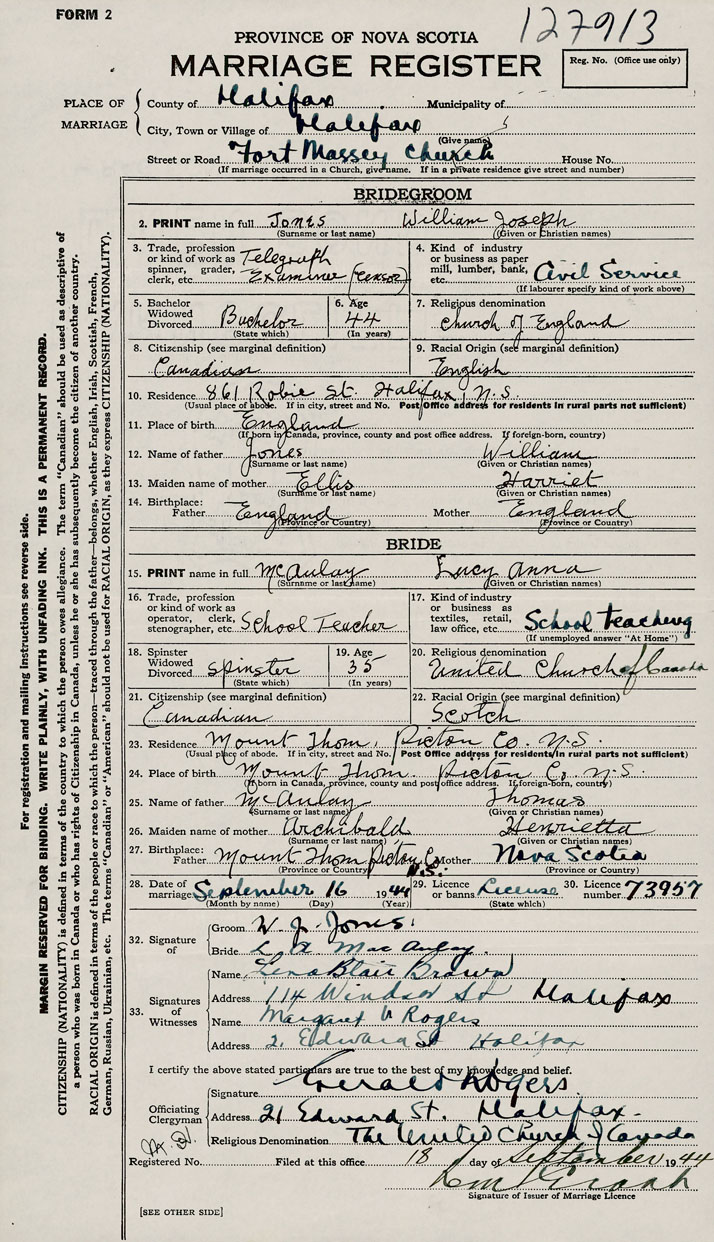 FORM 2
127913
PROVINCE OF NOVA SCOTIA
MARRIAGE REGISTER
Reg. No. (Office use only)
PLACE OF MARRIAGE
County of Halifax Municipality of
City, Town or Village of Halifax
(Give name)
Street or Road Fort Massey Church House No.
(If marriage occurred in a Church, give name. If in a private residence give street and number)
BRIDEGROOM
2. PRINT name in full Jones William Joseph
(Surname or last name) (Given or Christian names)
3. Trade, profession or kind of work as spinner, grader, clerk, etc. Telegraph Examiner (Censor)
4. Kind of industry or business as paper mill, lumber, bank, etc. Civil Service
(If labourer specify kind of work above)
5. Bachelor Widowed Divorced Bachelor
(State which)
6. Age 44
(In years)
7. Religious denomination
Church of England
8. Citizenship (see marginal definition)
Canadian
9. Racial Origin (see marginal definition)
English
10. Residence 861 Robie St. Halifax, N.S.
(Usual place of abode. If in city, street and No. Post Office address for residents in rural parts not sufficient)
11. Place of birth England
(If born in Canada, province, county and post office address. If foreign-born, country)
12. Name of father Jones William
(Surname or last name) (Given or Christian names)
13. Maiden name of mother Ellis Harriet
(Surname or last name) (Given or Christian names)
14. Birthplace: Father England Mother England
(Province or Country) (Province or Country)
BRIDE
15. PRINT name in full McAulay Lucy Anna
(Surname or last name) (Given or Christian names)
16. Trade, profession or kind of work as operator, clerk, stenographer, etc. School Teacher
17. Kind of industry or business as textiles, retail, law office, etc. School teaching
(If unemployed answer "At Home")
18. Spinster Widowed Divorced Spinster
(State which)
19. Age 35
(In years)
20. Religious denomination
United Church of Canada
21. Citizenship (see marginal definition)
Canadian
22. Racial Origin (see marginal definition)
Scotch
23. Residence Mount Thom, Pictou Co. N.S.
(Usual place of abode. If in city, street and No. Post Office address for residents in rural parts not sufficient)
24. Place of birth Mount Thom. Pictou Co. N.S.
(If born in Canada, province, county and post office address. If foreign-born, country)
25. Name of father McAulay Thomas
(Surname or last name) (Given or Christian names)
26. Maiden name of mother Archibald Henrietta
(Surname or last name) (Given or Christian names)
27. Birthplace: Father Mount Thom Pictou Co. N.S. Mother Nova Scotia
(Province or Country) (Province or Country)
28. Date of marriage September 16 1944
(Month by name) (Day) (Year)
29. Licence or banns License
(State which)
30. Licence number 73957
32. Signature of
Groom W. J. Jones
Bride L. A. MacAulay
33. Signatures of Witnesses
Name Lena Blair Brown
Address 114 Windsor St Halifax
Name Margaret Rogers
Address 21 Edward St Halifax
I certify the above stated particulars are true to the best of my knowledge and belief.
Officiating Clergyman
Signature Gerald Rogers
Address 21 Edward St. Halifax.
Religious Denomination The United Church of Canada
Registered No. Filed at this office 18 day of September 1944
Signature of Issuer of Marriage Licence
[SEE OTHER SIDE]
For registration and mailing instructions see reverse side.
MARGIN RESERVED FOR BINDING. WRITE PLAINLY, WITH UNFADING INK. THIS IS A PERMANENT RECORD.
CITIZENSHIP (NATIONALITY) is defined in terms of the country to which the person owes allegiance. The term "Canadian" should be used as descriptive of
a person who was born in Canada or who has rights of Citizenship in Canada, unless he or she has subsequently become the citizen of another country.
RACIAL ORIGIN is defined in terms of the people or race to which the person—traced through the father—belongs, whether English, Irish, Scottish, French,
German, Russian, Ukrainian, etc. The terms "Canadian" or "American" should not be used for RACIAL ORIGIN, as they express CITIZENSHIP (NATIONALITY).